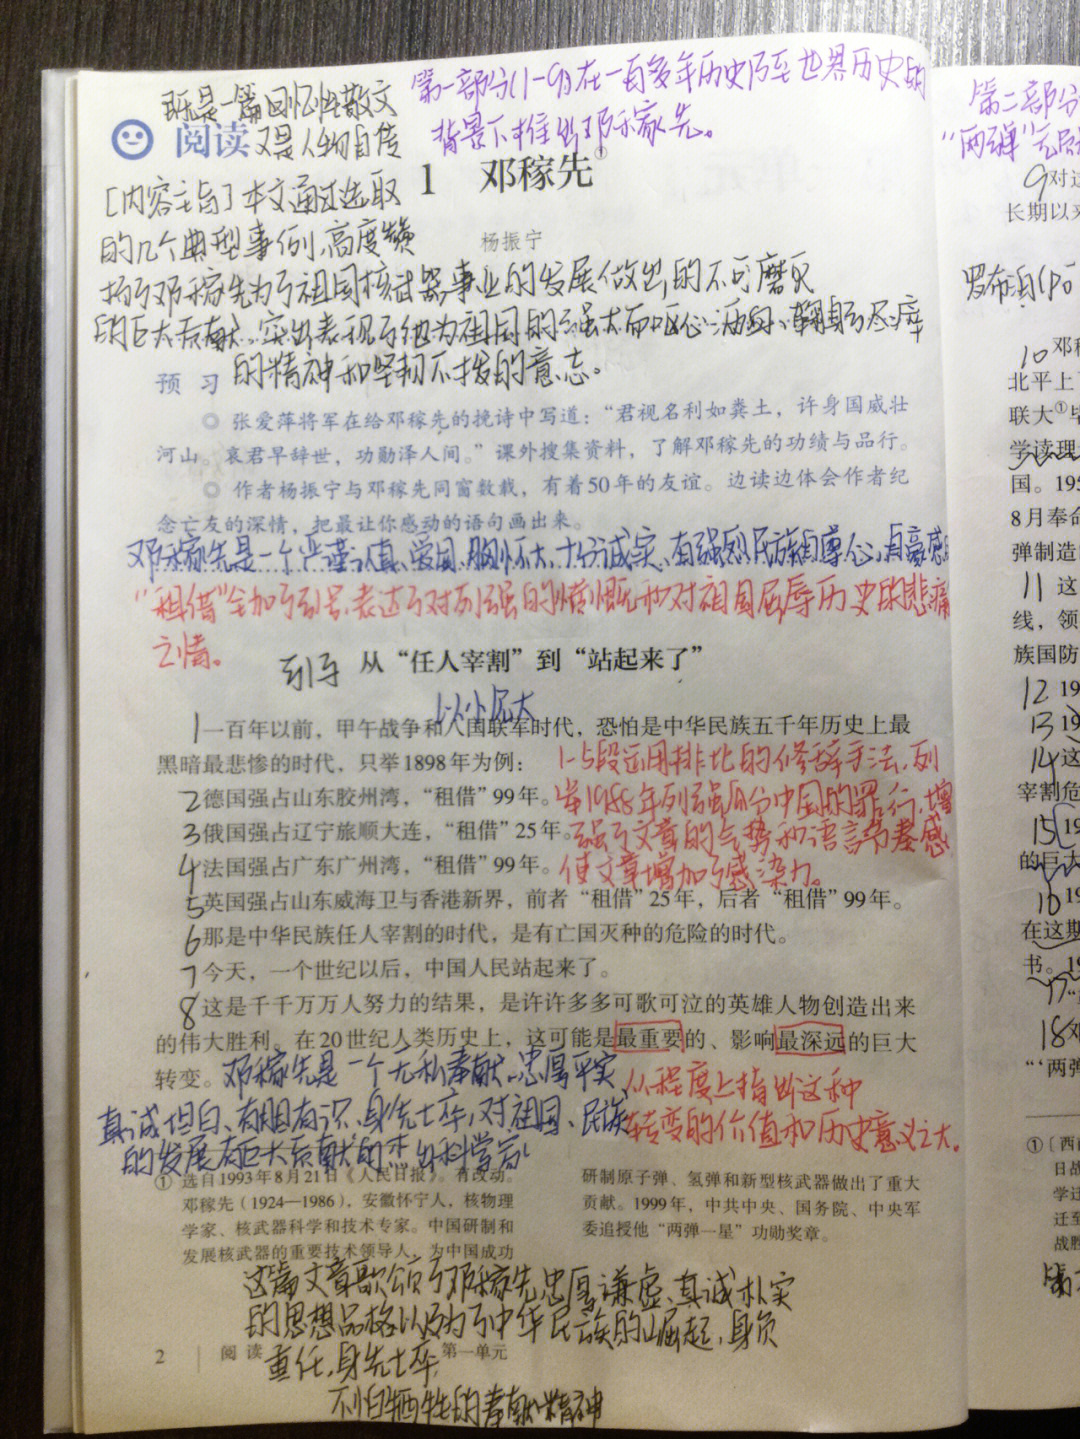 既是一篇回忆性散文
第一部分(1-9)在一百多年历史乃至世界历史的
背景下推出邓稼先。
阅读
又是人物自传
1 邓稼先①
[内容主旨]本文通过选取
的几个典型事例,高度赞
杨振宁
扬了邓稼先为了祖国核武器事业的发展做出的不可磨灭
的巨大贡献,突出表现了他为祖国的强大而呕心沥血、鞠躬尽瘁
的精神和坚韧不拔的意志。
预 习
○ 张爱萍将军在给邓稼先的挽诗中写道:“君视名利如粪土,许身国威壮
河山。哀君早辞世,功勋泽人间。”课外搜集资料,了解邓稼先的功绩与品行。
○ 作者杨振宁与邓稼先同窗数载,有着50年的友谊。边读边体会作者纪
念亡友的深情,把最让你感动的语句画出来。
邓稼先是一个严谨认真、爱国、胸怀大、十分诚实、有强烈民族自尊心,自豪感
“租借”全加了引号,表达了对列强的愤慨和对祖国屈辱历史的悲痛
之情。
引子 从“任人宰割”到“站起来了”
以小见大
1一百年以前,甲午战争和八国联军时代,恐怕是中华民族五千年历史上最
黑暗最悲惨的时代,只举1898年为例:
1-5段运用排比的修辞手法,列
2德国强占山东胶州湾,“租借”99年。
举1988年列强瓜分中国的罪行,增
3俄国强占辽宁旅顺大连,“租借”25年。
强了文章的气势和语言节奏感
4法国强占广东广州湾,“租借”99年。
使文章增加了感染力。
5英国强占山东威海卫与香港新界,前者“租借”25年,后者“租借”99年。
6那是中华民族任人宰割的时代,是有亡国灭种的危险的时代。
7今天,一个世纪以后,中国人民站起来了。
8这是千千万万人努力的结果,是许许多多可歌可泣的英雄人物创造出来
的伟大胜利。在20世纪人类历史上,这可能是最重要的、影响最深远的巨大
转变。
邓稼先是一个无私奉献、忠厚平实
真诚坦白、有胆有识、身先士卒,对祖国、民族
的发展有巨大贡献的 科学家
从程度上指出这种
转变的价值和历史意义之大。
① 选自1993年8月21日《人民日报》。有改动。
邓稼先(1924—1986),安徽怀宁人,核物理
学家、核武器科学和技术专家。中国研制和
发展核武器的重要技术领导人,为中国成功
研制原子弹、氢弹和新型核武器做出了重大
贡献。1999年,中共中央、国务院、中央军
委追授他“两弹一星”功勋奖章。
这篇文章歌颂了邓稼先忠厚谦虚、真诚朴实
的思想品格以及为了中华民族的崛起,身负
重任,身先士卒,
不怕牺牲的奉献精神
2 阅读 第一单元
第二部分
“两弹”元
9对这
长期以来
罗布泊
10邓稼
北平上
联大①毕
学读理
国。195
8月奉命
弹制造
11这
线,领
族国防
12 19
13 19
14这
宰割危
15 19
的巨大
16 19
在这期
书。19
17“
18邓
“‘两弹
① [西南
日战
学迁
迁至
战胜